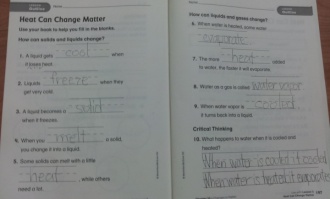 Heat Can Change Matter
Use your book to help you fill in the blanks.
How can solids and liquids change?
1. A liquid gets cool when
it loses heat.
2. Liquids freeze when they
get very cold.
3. A liquid becomes a solid
when it freezes.
4. When you melt a solid,
you change it into a liquid.
5. Some solids can melt with a little
heat, while others
need a lot.
How can liquids and gases change?
6. When water is heated, some water
evaporate
7. The more heat added
to water, the faster it will evaporate.
8. Water as a gas is called water vapor
9. When water vapor is cooled
it turns back into a liquid.
Critical Thinking
10. What happens to water when it is cooled and
heated?
When water is cooled it cooled
When water is heated it evaporate